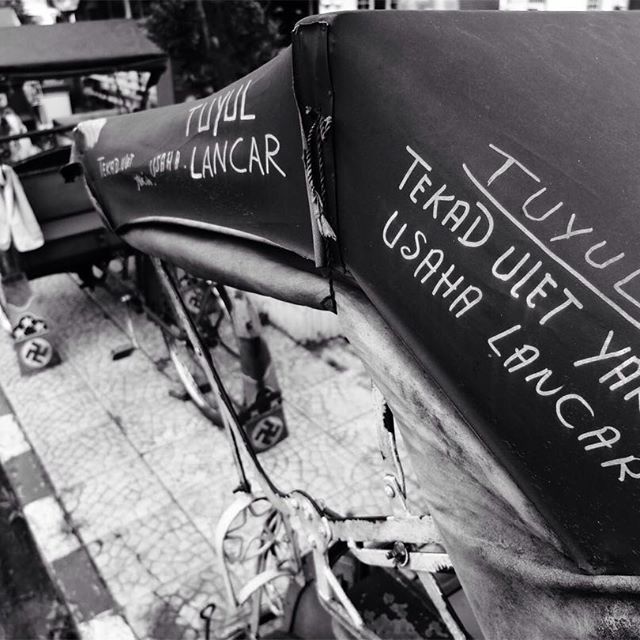 TUYUL
TEKAD ULET
USAHA LANCAR
TUYUL
TEKAD ULET
USAHA LANCAR